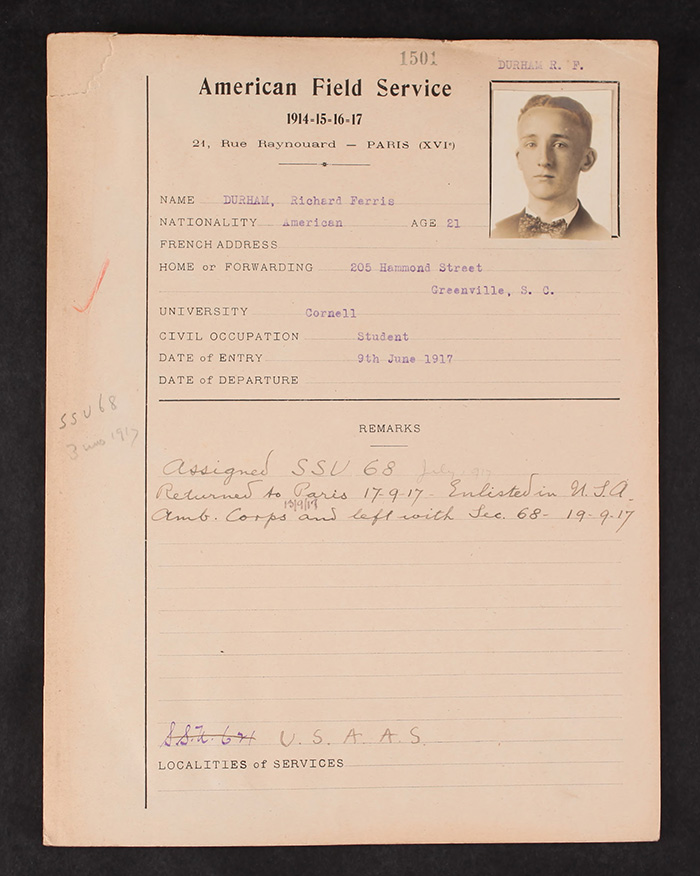 1501
DURHAM R. F.
American Field Service
1914=15=16=17
21, Rue Raynouard — PARIS (XVIe)
NAME DURHAM, Richard Ferris
NATIONALITY American AGE 21
FRENCH ADDRESS
HOME or FORWARDING 205 Hammond Street
Greenville, S. C.
UNIVERSITY Cornell
CIVIL OCCUPATION Student
DATE of ENTRY 9th June 1917
DATE of DEPARTURE
SSU 68
3 1917
REMARKS
Assigned SSU 68 July
Returned to Paris 17-9-17- Enlisted in U.S.A.
Amb. Corps and left with Sec. 68- 19-9-17
U. S. A. A. S.
LOCALITIES of SERVICES